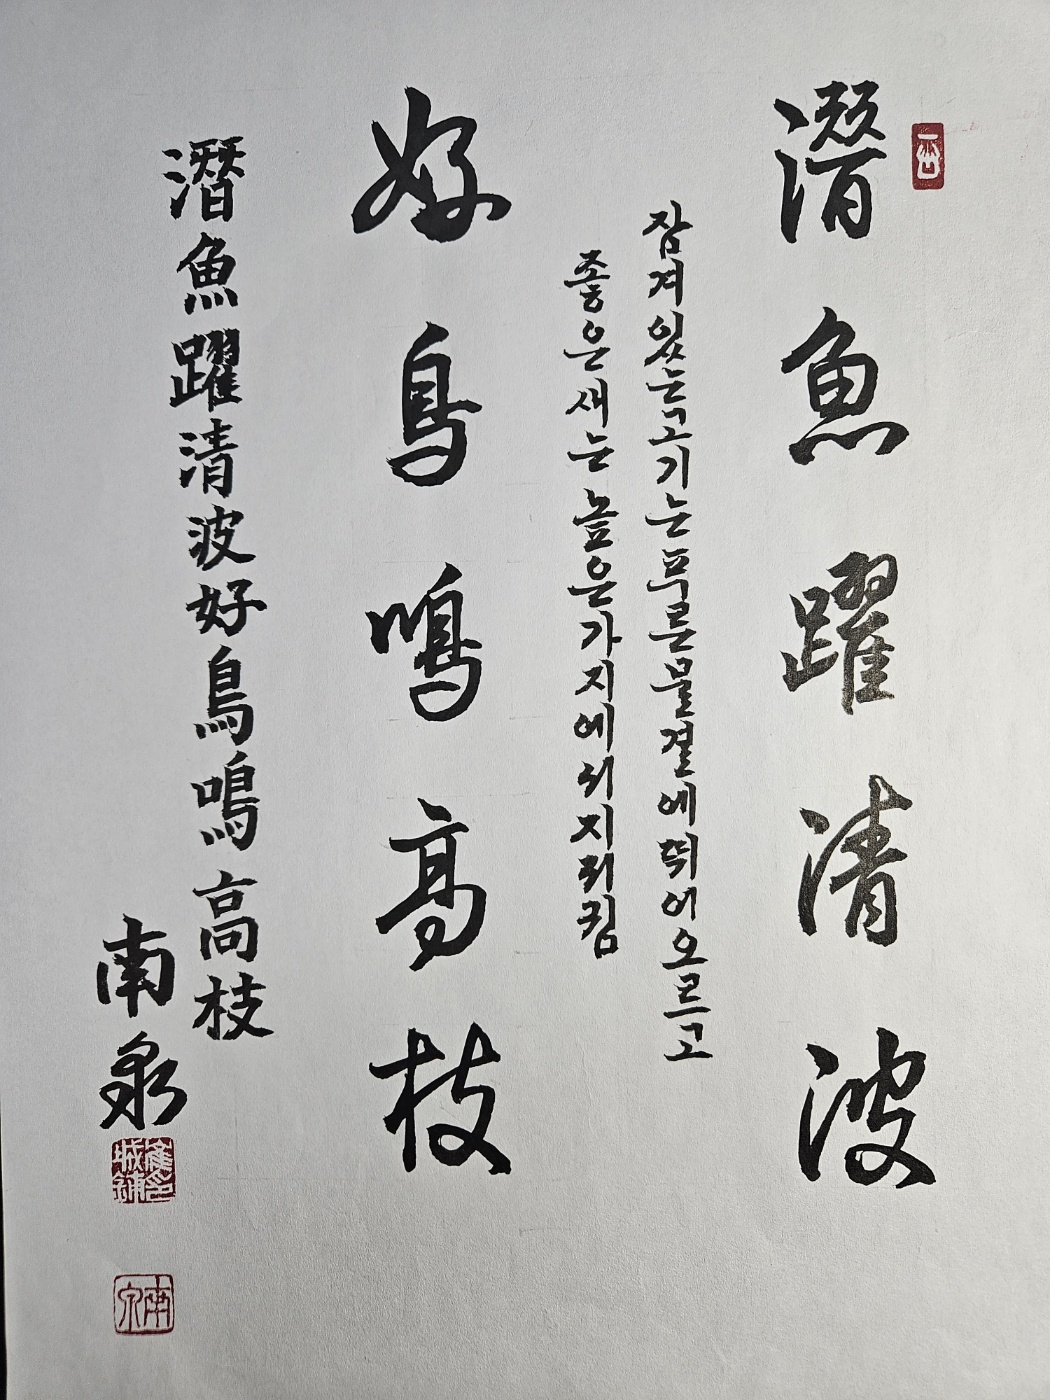 潛魚躍清波
잠겨있는고기는푸른물결에뛰어오르고
좋은새는높은가지에서지저귐
好鳥鳴高枝
潛魚躍清波好鳥鳴高枝
南泉
南泉